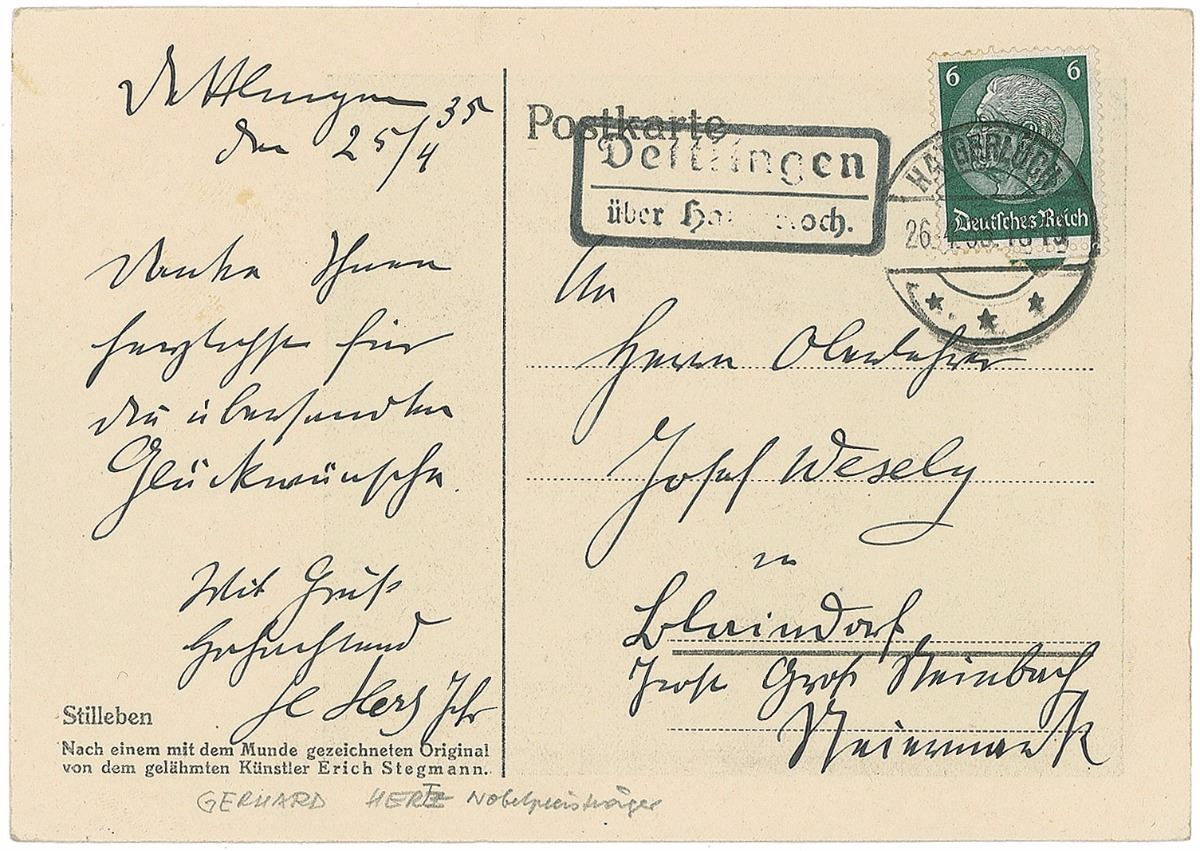 Dettlingen
den 25/4 35
Danke Ihnen
herzlichst für
die übersandten
Glückwünsche.
Mit Gruß
Hochachtend
Stilleben
Nach einem mit dem Munde gezeichneten Original
von dem gelähmten Künstler Erich Stegmann.
GERHARD HERTZ Nobelpreisträger
Postkarte
Dettlingen
über Haigerloch.
6 6
Deutsches Reich
HAIGERLOCH
26.4.35.18-19
An
Herrn Oberlehrer
Josef Wesely
in
Blaindorf
Post Groß Steinbach
Steiermark